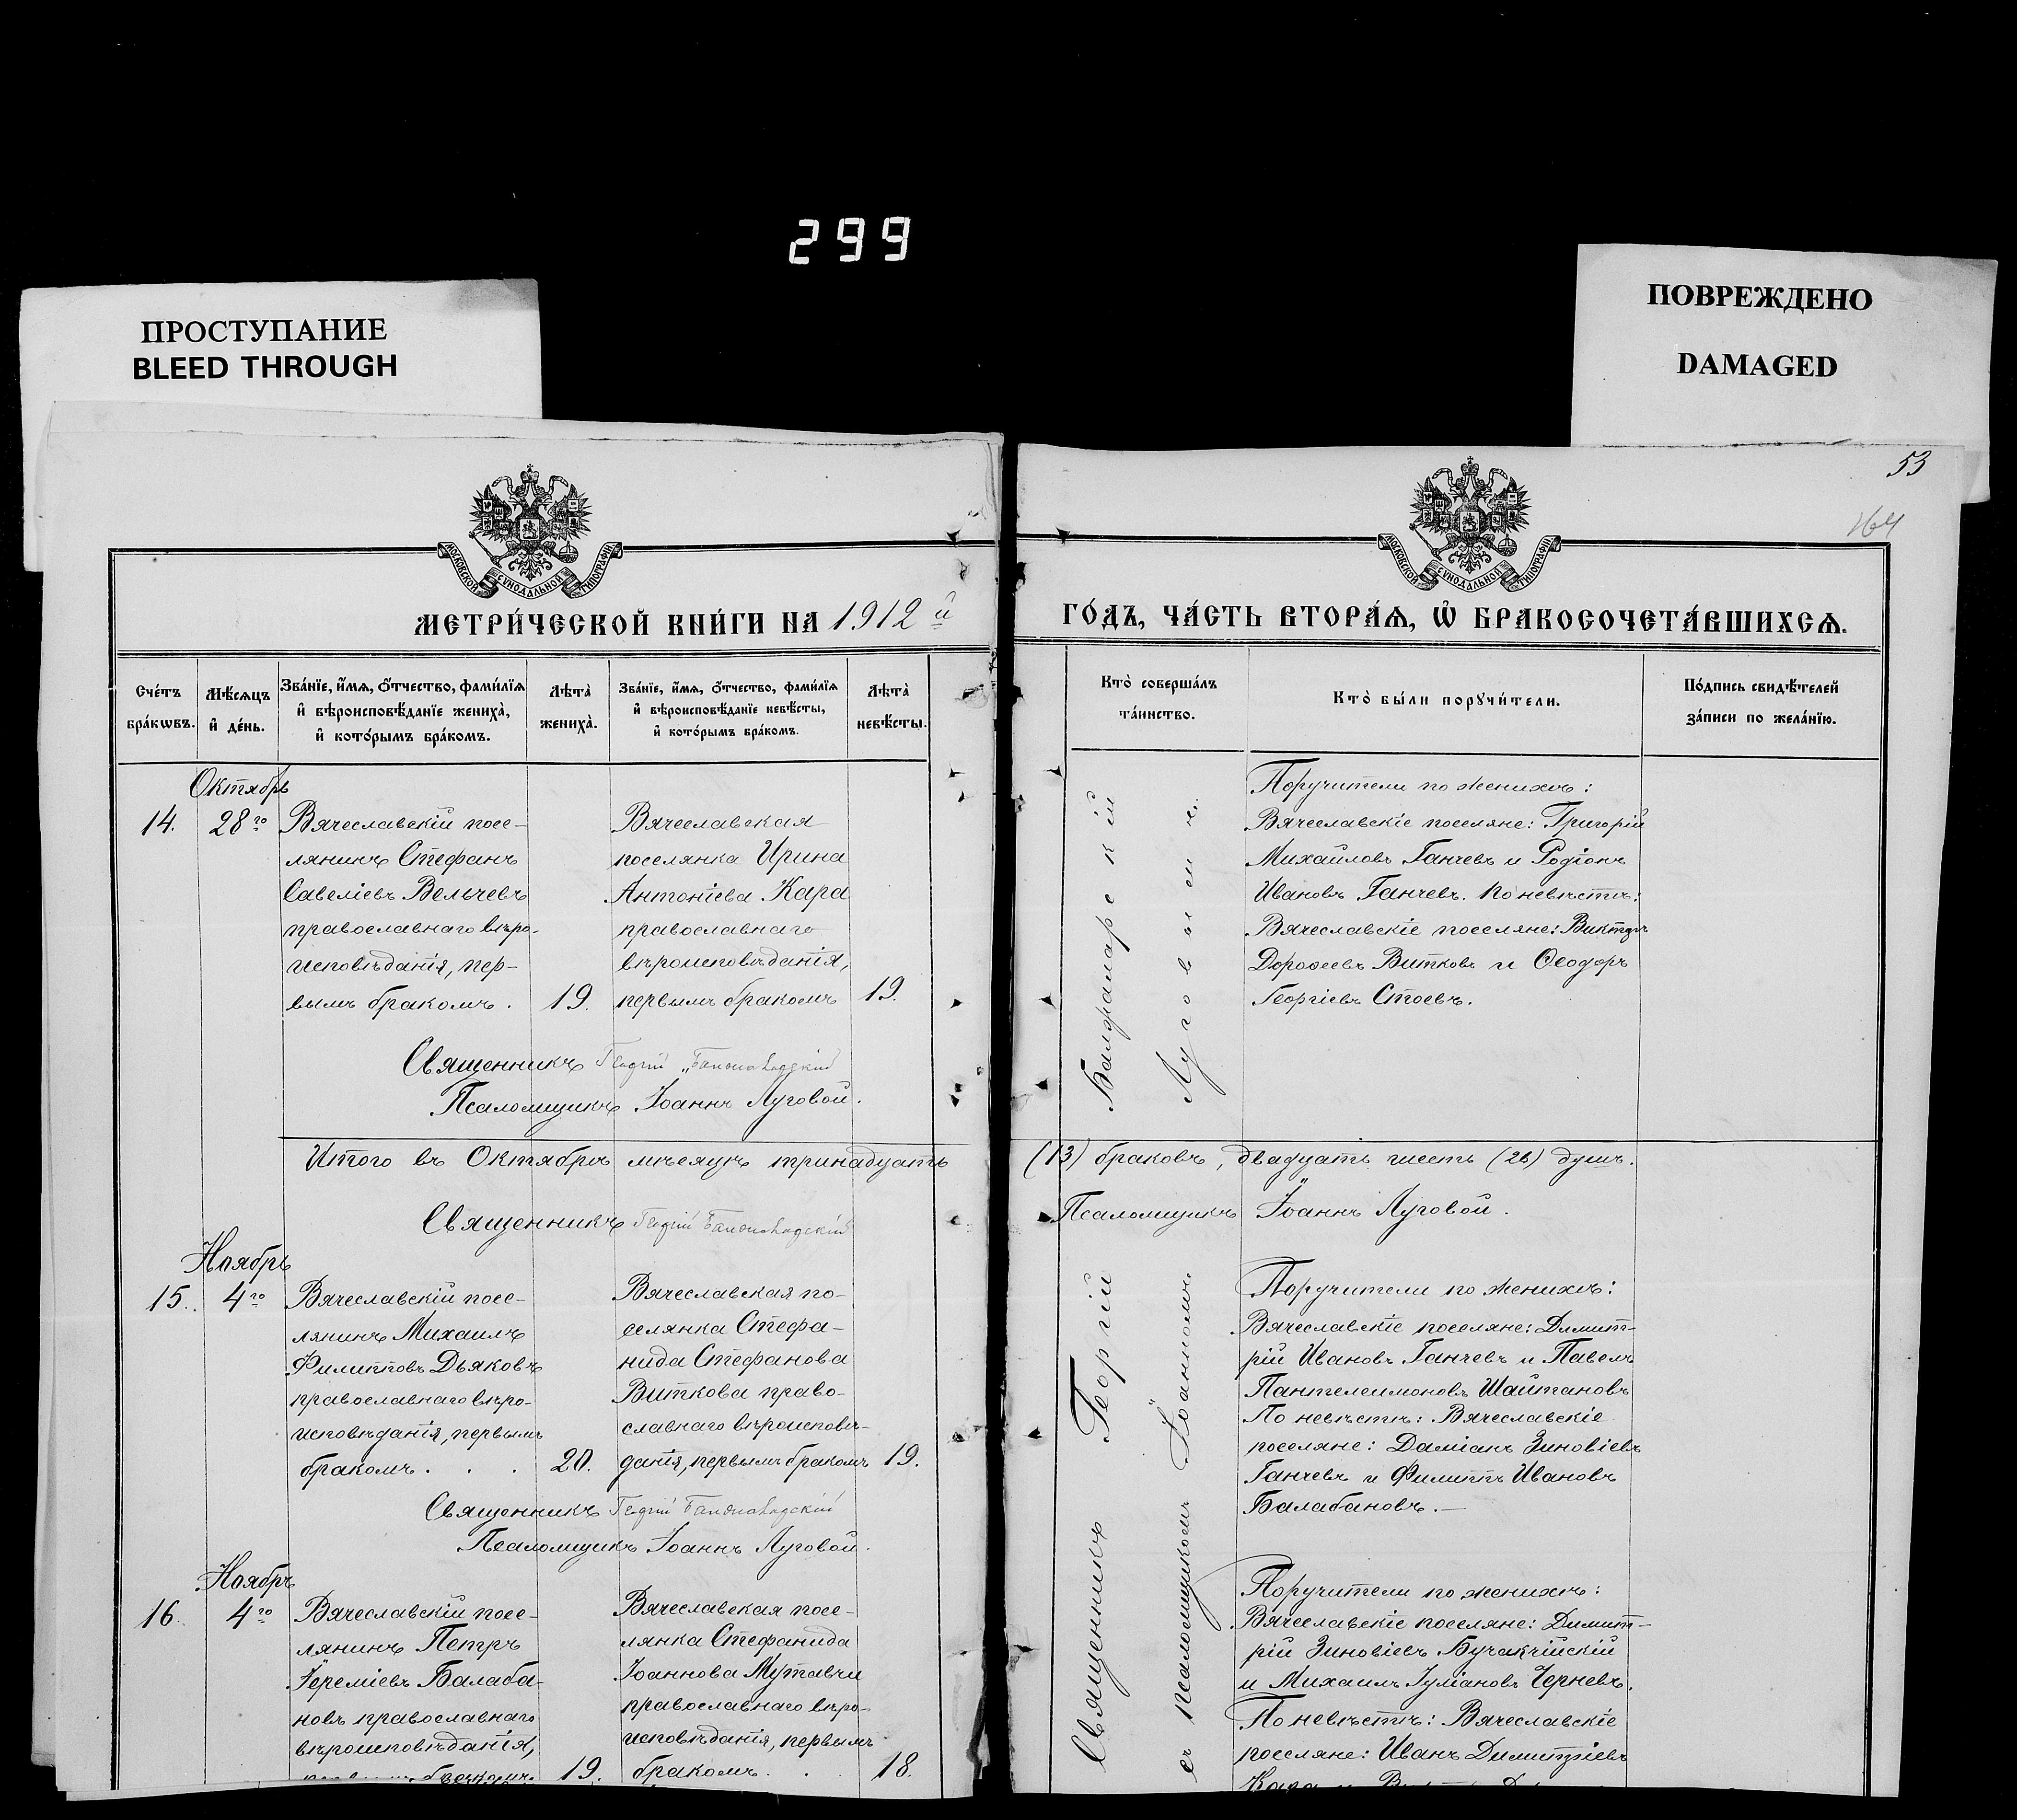 299
ПРОСТУПАНИЕ
BLEED THROUGH
ПОВРЕЖДЕНО
DAMAGED
53
164
МОСКОВСКОЙ СѴНОДАЛЬНОЙ ТИПОГРАФІИ
МОСКОВСКОЙ СѴНОДАЛЬНОЙ ТИПОГРАФІИ
МЕТРИ́ЧЕСКОЙ КНИ́ГИ НА 1912й
ГО́ДЪ, ЧА́СТЬ ВТОРА́Ѧ, Ѽ БРАКОСОЧЕТА́ВШИХСѦ.
Сче́тъ
бра́кѡвъ.
Мѣ́сѧцъ
и҆ де́нь.
Зва́нїе, и҆́мѧ, ѻ҆́тчество, фами́лїѧ
и҆ вѣроисповѣ́данїе жениха̀,
и҆ кото́рымъ бра́комъ.
Лѣта̀
жениха̀.
Зва́нїе, и҆́мѧ, ѻ҆́тчество, фами́лїѧ
и҆ вѣроисповѣ́данїе невѣ́сты,
и҆ кото́рымъ бра́комъ.
Лѣта̀
невѣ́сты.
Кто̀ соверша́лъ
та́инство.
Кто̀ бы́ли порꙋчи́тели.
По́дпись свидѣ́телей
за́писи по жела́нїю.
Октябрь
14.
28го
Вячеславскій посе-
лянинъ Стефанъ
Савеліевъ Вельчевъ
православнаго вѣро-
исповѣданія, пер-
вымъ бракомъ.
19.
Вячеславская
поселянка Ирина
Антоніева Кара
православнаго
вѣроисповѣданія,
первымъ бракомъ
19.
Поручители по женихѣ:
Вячеславскіе поселяне: Григорій
Михайловъ Ганчевъ и Родіонъ
Ивановъ Ганчевъ. По невѣстѣ:
Вячеславскіе поселяне: Викторъ
Дорофеевъ Витковъ и Ѳеодоръ
Георгіевъ Стоевъ.
Священникъ Георгій
Псаломщикъ Іоаннъ Луговой.
Итого въ Октябрѣ мѣсяцѣ тринадцать (13) браковъ, двадцать шесть (26) душъ.
Священникъ Георгій
Псаломщикъ Іоаннъ Луговой.
Ноябрь
15.
4го
Вячеславскій посе-
лянинъ Михаилъ
Филипповъ Дьяковъ
православнаго вѣро-
исповѣданія, первымъ
бракомъ . . .
20.
Вячеславская по-
селянка Стефа-
нида Стефанова
Виткова право-
славнаго вѣроисповѣ-
данія, первымъ бракомъ
19.
Поручители по женихѣ:
Вячеславскіе поселяне: Димит-
рій Ивановъ Ганчевъ и Павелъ
Пантелеимоновъ Шайтановъ
По невѣстѣ: Вячеславскіе
поселяне: Даміанъ Зиновіевъ
Ганчевъ и Филиппъ Ивановъ
Балабановъ.—
Священникъ Георгій
Псаломщикъ Іоаннъ Луговой.
Ноябрь
16.
4го
Вячеславскій посе-
лянинъ Петръ
Іереміевъ Балаба-
новъ православнаго
вѣроисповѣданія,
бракомъ
19.
Вячеславская посе-
лянка Стефанида
Іоаннова Мутавчи
православнаго вѣро-
исповѣданія, первымъ
бракомъ. . .
18.
Поручители по женихѣ:
Вячеславскіе поселяне: Димит-
рій Зиновіевъ Бучакчійскій
и Михаилъ Іуліановъ Черневъ.
По невѣстѣ: Вячеславскіе
поселяне: Иванъ Димитріевъ
Кара и
Священникъ Георгій
съ псаломщикомъ Іоанномъ
Луговымъ.